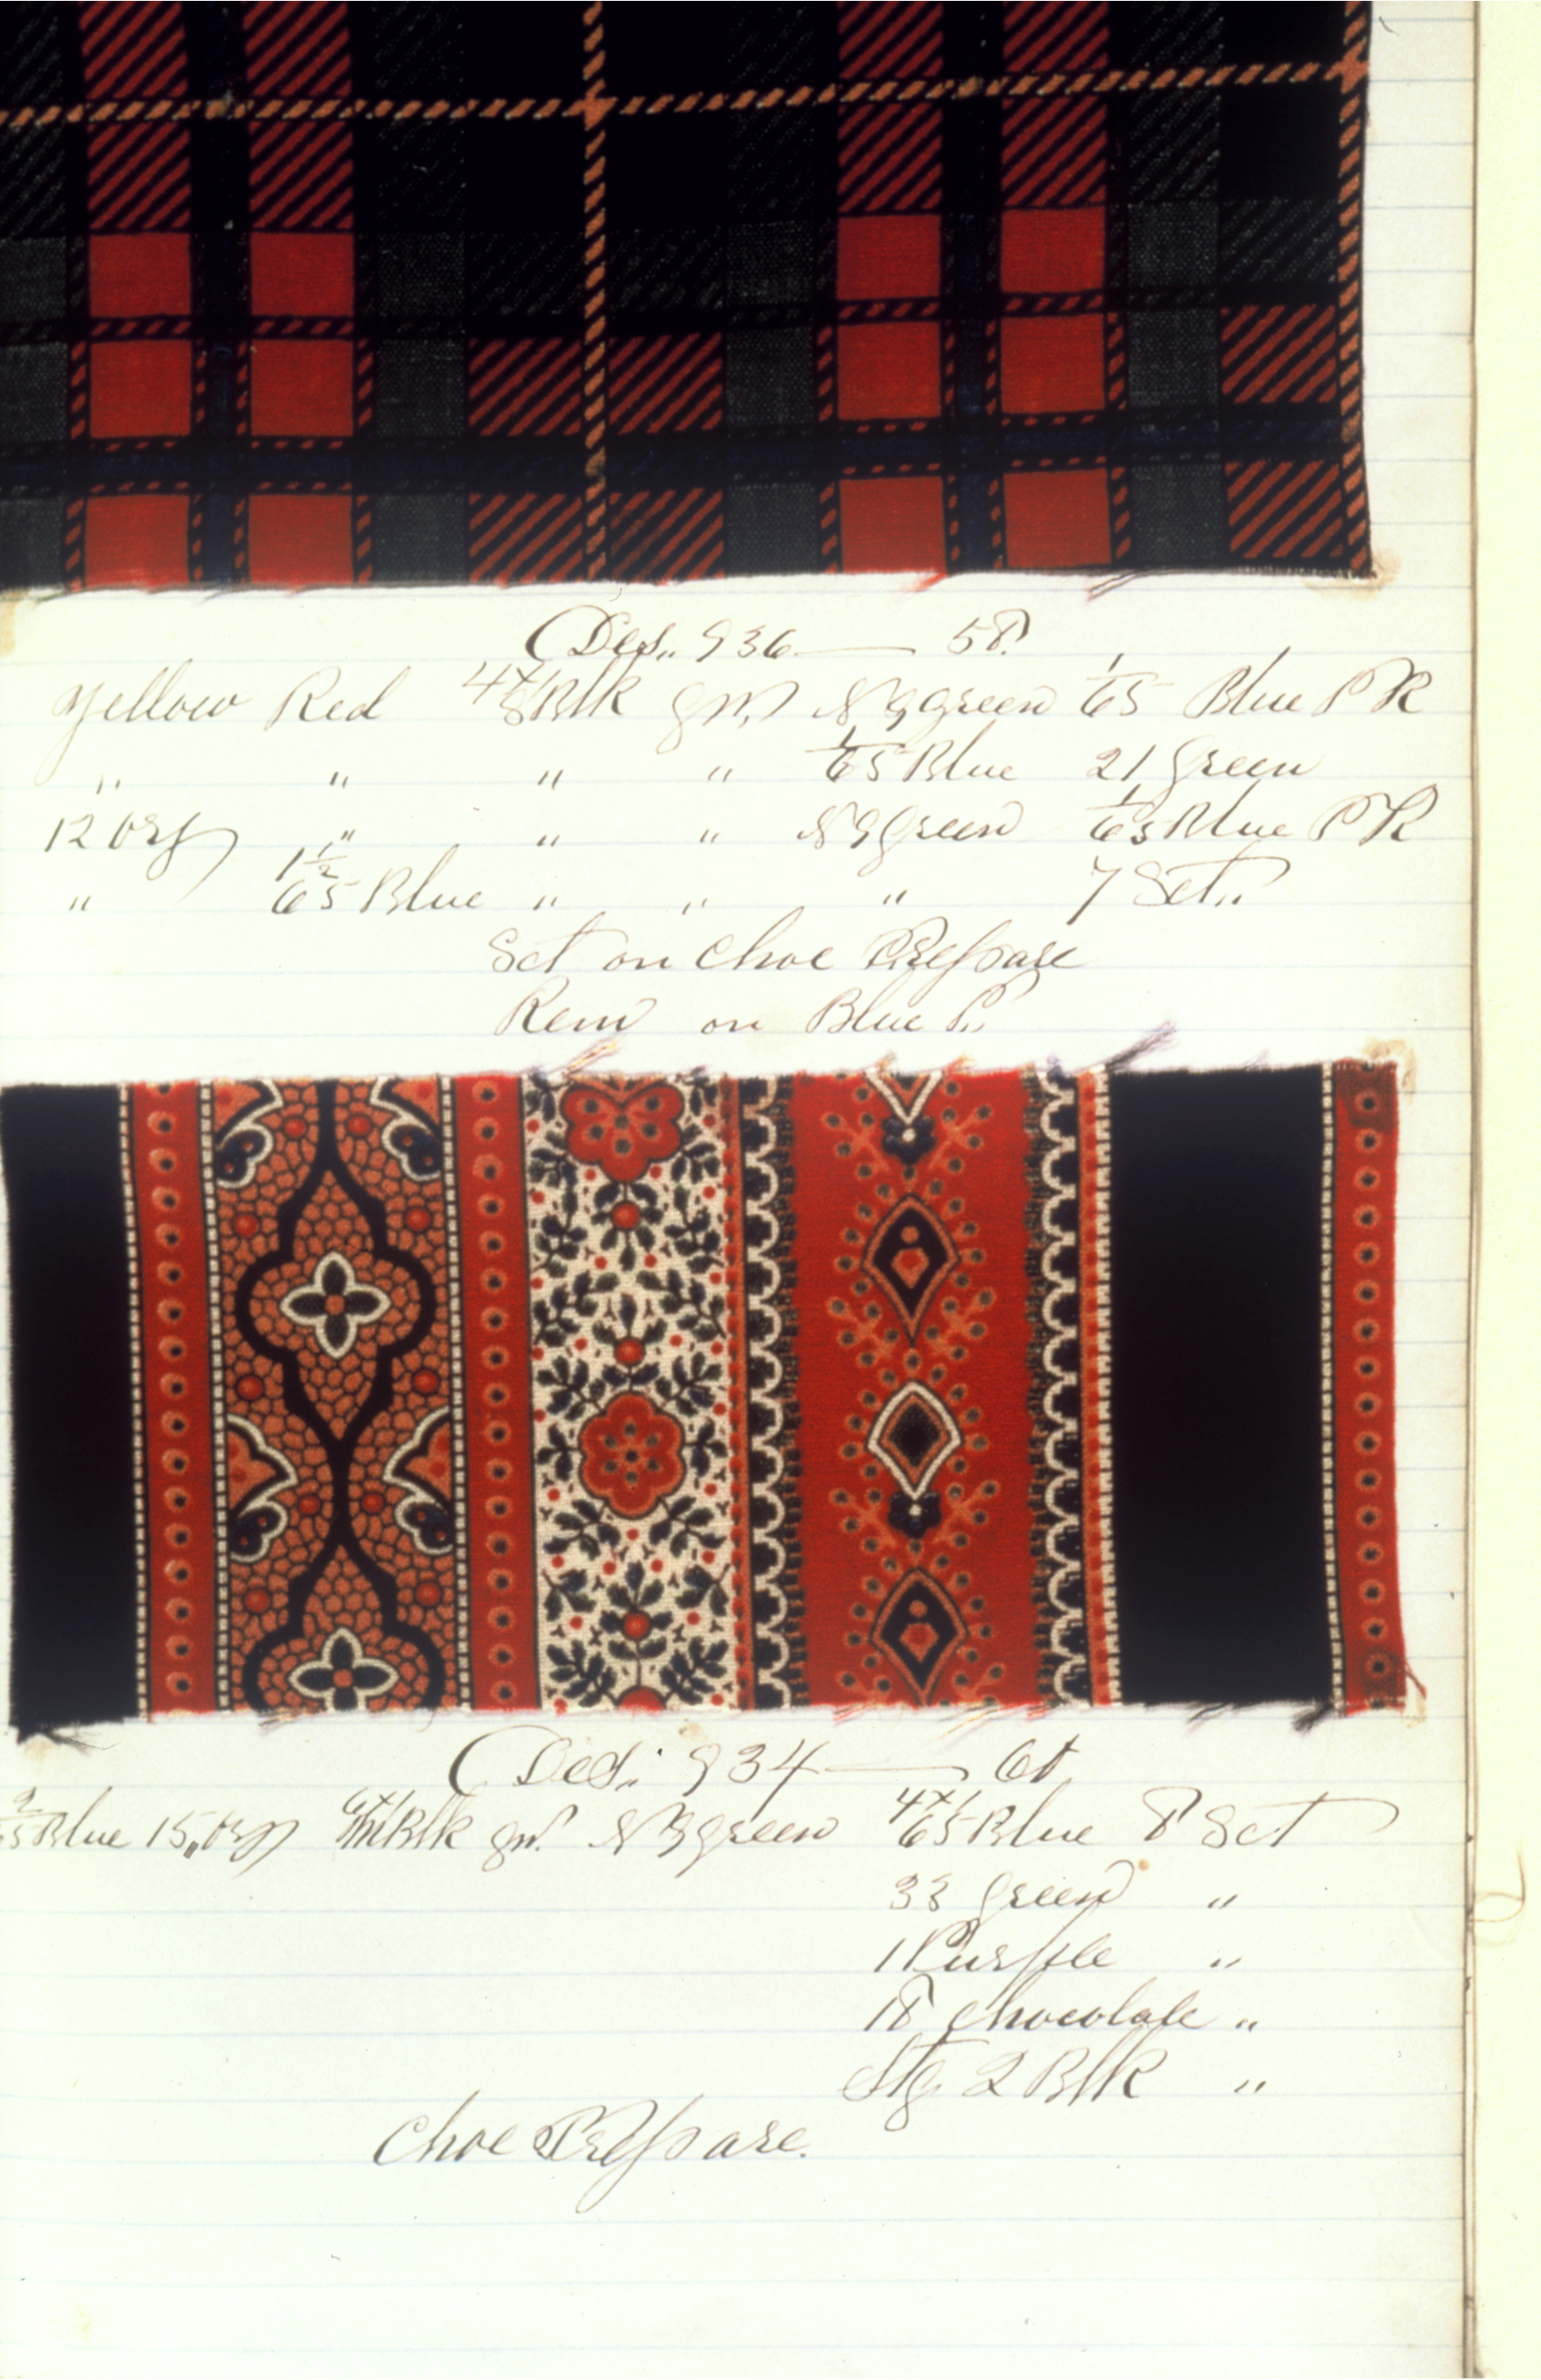 Des.. 936 — 58
Yellow Red 4x1/8 Blk N 9 green 1/65 Blue P R
" " " " 1/65 Blue 21 Green
12 Org " " " N 9 Green 1/65 Blue P R
" 1½/65 Blue " " " 7 Set..
Set on Choc Prepare
Rem on Blue P..
Des.. 934 — 6t
Blue 15,, Org Blk N 3 green 4x1/65 Blue 8 Set
33 Green "
1 Purple "
18 Chocolate "
2 Blk "
Choc Prepare.